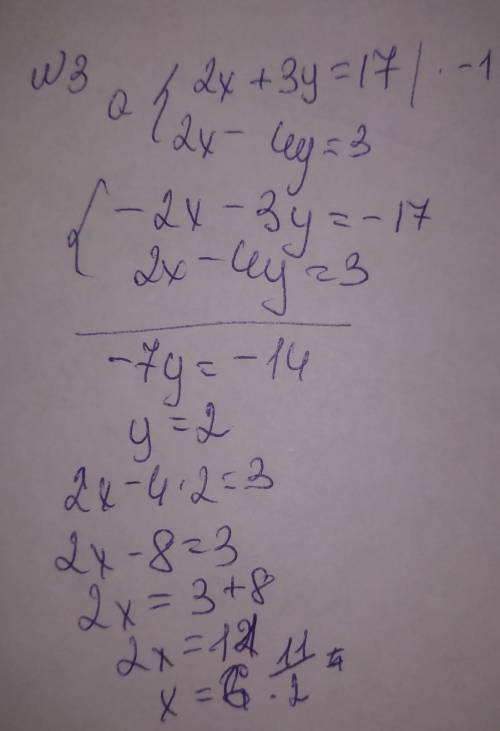 №3 а { 2x + 3y = 17 | · -1
2x - 4y = 3
{ -2x - 3y = -17
2x - 4y = 3
-7y = -14
y = 2
2x - 4 · 2 = 3
2x - 8 = 3
2x = 3 + 8
2x = 11
x = 11/2